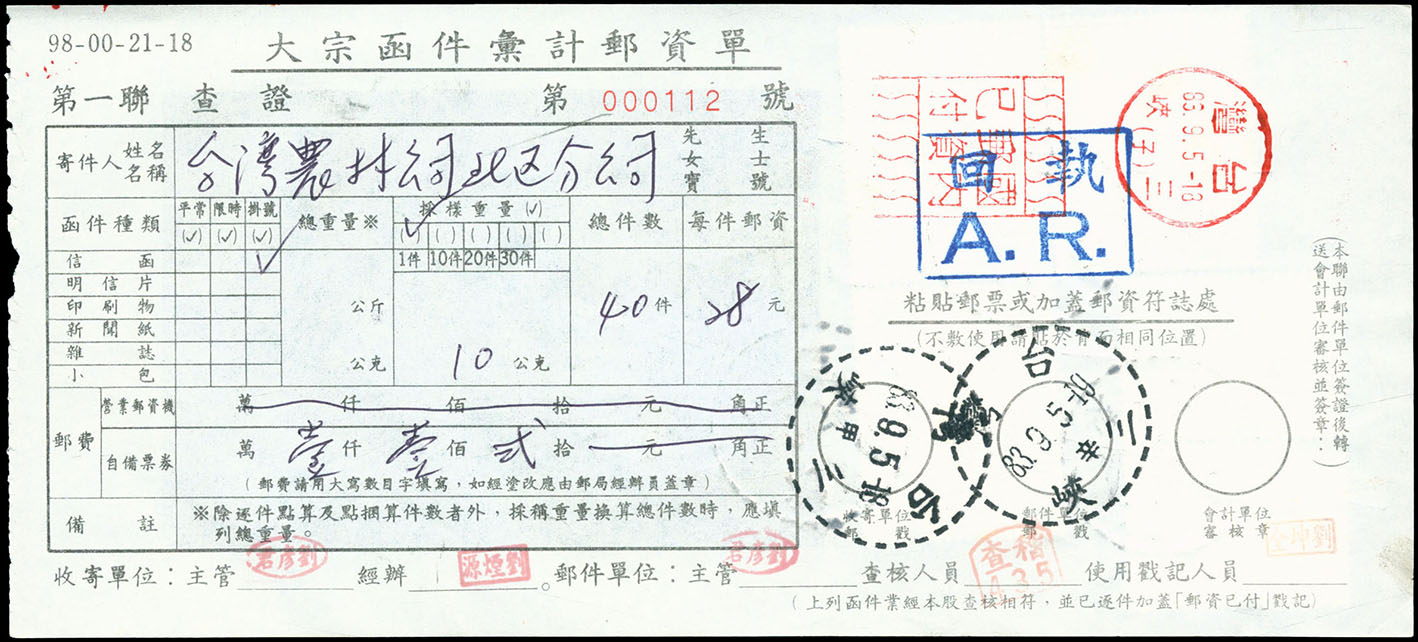 98-00-21-18
大宗函件彙計郵資單
第一聯 查證 第 000112 號
寄件人 姓名 名稱 台灣農林公司北区分公司 先生 女士 寶號
函件種類 平常 限時 掛號 總重量※ 採樣重量(✓) 總件數 每件郵資
(✓) (✓) (✓) (✓) ( ) ( ) ( ) ( )
信函 ✓ 1件 10件 20件 30件
明信片
印刷物 公斤 40件 28元
新聞紙
雜誌 公克 10 公克
小包
郵費 營業郵資機 萬 仟 佰 拾 元 角正
自備票券 萬 壹仟 壹佰 弍拾 元 角正
(郵費請用大寫數目字填寫,如經塗改應由郵局經辦員蓋章)
備註 ※除逐件點算及點捆算件數者外,採稱重量換算總件數時,應填
列總重量。
收寄單位:主管 經辦 。郵件單位:主管 查核人員 使用戳記人員
劉彥君
劉煙源
劉彥君
稽查
A35
劉坤全
(上列函件業經本股查核相符,並已逐件加蓋「郵資已付」戳記)
中華民國
國內郵資已付
台灣
83.9.5-18
三峽(子)
回執
A.R.
粘貼郵票或加蓋郵資符誌處
(不敷使用請貼於背面相同位置)
台
三峽
83.9.5-18
甲
台
三峽
83.9.5-19
辛
收寄單位
郵戳
郵件單位
郵戳
會計單位
審核章
(本聯由郵件單位簽證後轉
送會計單位審核並簽章:)